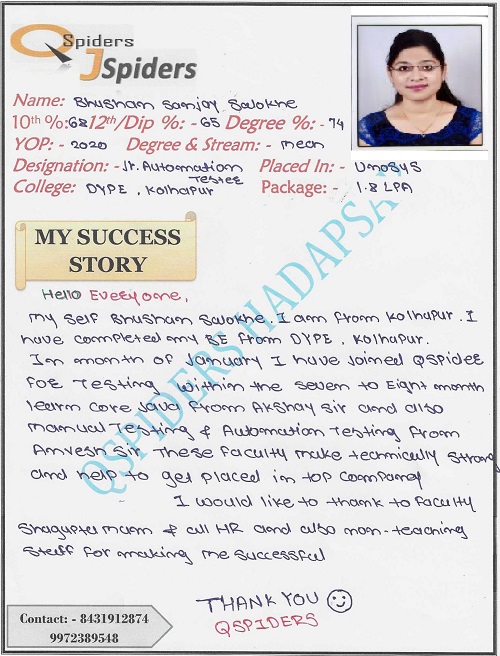 QSpiders
JSpiders
Name: Bhusham Sanjay Savokhe
10th %:68 12th/Dip %: - 65 Degree %: - 74
YOP: - 2020 Degree & Stream: - mech
Designation: - Jr. Automation Testee Placed In: - Unosys
College: DYPE , Kolhapur Package: - 1.8 LPA
MY SUCCESS
STORY
Hello Everyone,
my self Bhusham Savokhe. I am from Kolhapur. I
have completed my BE from DYPE, Kolhapur.
In month of January I have joined QSpidee
foe Testing within the seven to Eight month
learn core Java from Akshay sir and also
manual Testing & Automation Testing from
Anvesh sir These faculty make technically strong
and help to get placed in top company
I would like to thank to faculty
Shagupta mam & all HR and also non-teaching
staff for making me successful
THANK YOU ☺
QSPIDERS
Contact: - 8431912874
9972389548
QSPIDERS HADAPSAR